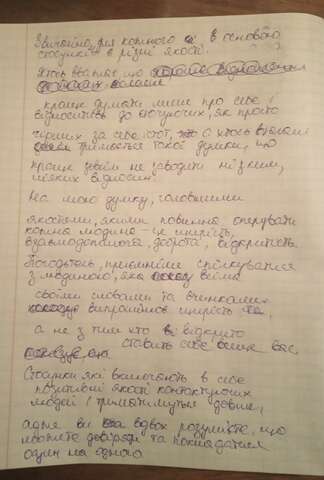 Звичайно, для кожного є в основою
стосунків є різні якості.
Хтось вважає, що
краще думати лише про себе і
відноситись до оточуючих, як просто
гірших за себе істот, а хтось взагалі
тримається такої думки, що
краще зовсім не заводити ні з ким,
ніяких відносин.
На мою думку, головними
якостями, якими повинна оперувати
кожна людина – це щирість,
взаємодопомога, доброта, відкритість.
Погодьтесь, приємніше спілкуватися
з людиною, яка всіма
своїми словами та вчинками
випромінює щирість
а не з тим хто відкрито
ставить себе вище вас,
Стосунки які включають в себе
позитивні якості контактуючих
людей і триматимуться довше,
адже ви вдвох розумієте, що
можете довіряти та покладатися
один на одного